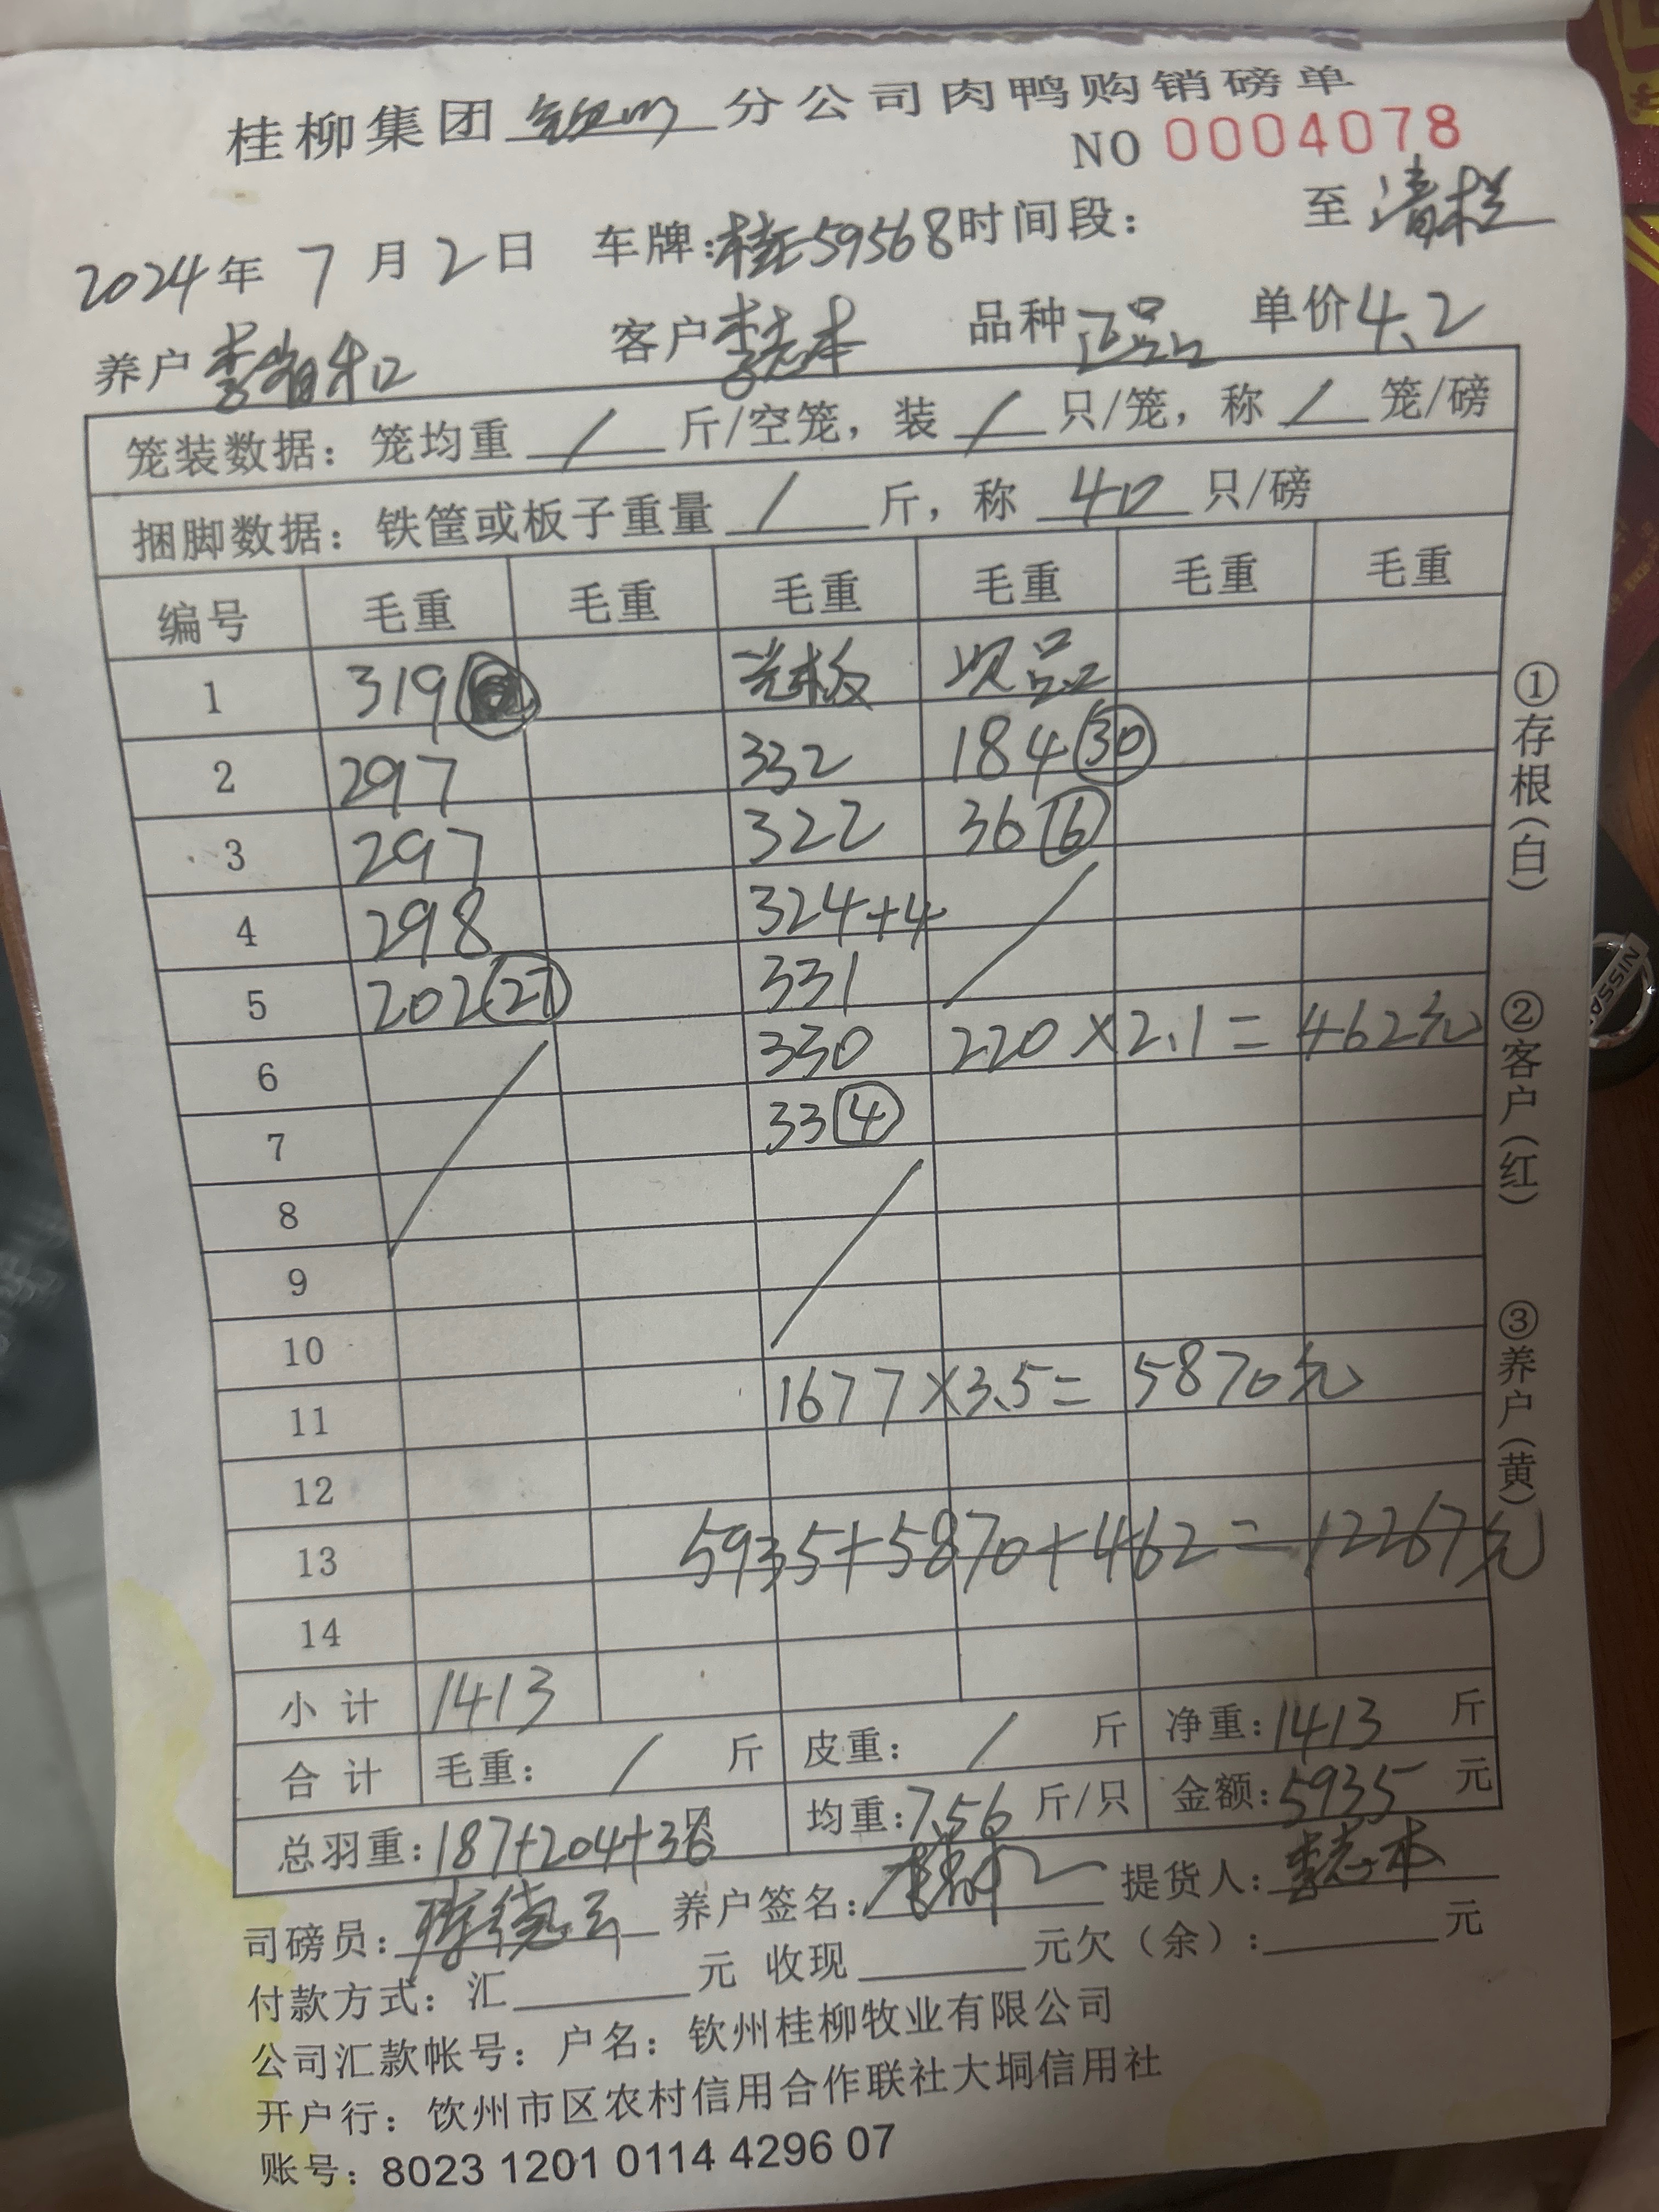 桂柳集团钦州分公司肉鸭购销磅单
NO 0004078
2024年 7月2日 车牌:桂E59568时间段: 至 清栏
养户 客户李志本 品种 正品 单价4.2
笼装数据:笼均重 / 斤/空笼,装 / 只/笼,称 / 笼/磅
捆脚数据:铁筐或板子重量 / 斤,称 40 只/磅
编号 毛重 毛重 毛重 毛重 毛重 毛重
1 319 光板 次品
2 297 332 184(30)
3 297 322 36(6)
4 298 324+4
5 202(27) 331
6 330 220×2.1=462元
7 33(4)
8
9
10
11 1677×3.5=5870元
12
13 5935+5870+462=12267元
14
小计 1413
合计 毛重: / 斤 皮重: / 斤 净重:1413 斤
总羽重:187+204+36只 均重:7.56 斤/只 金额:5935 元
司磅员: 养户签名: 提货人:李志本
付款方式:汇 元 收现 元欠(余): 元
公司汇款帐号:户名:钦州桂柳牧业有限公司
开户行:钦州市区农村信用合作联社大垌信用社
账号:8023 1201 0114 4296 07
①存根(白) ②客户(红) ③养户(黄)
NISSAN